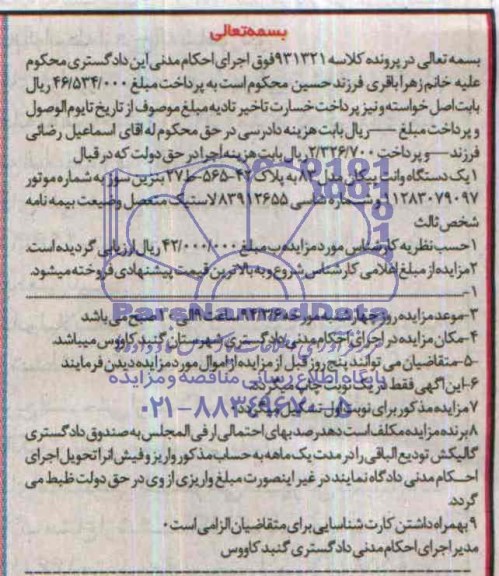 بسمه‌تعالی
بسمه تعالی در پرونده کلاسه ۹۳۱۳۲۱ فوق اجرای احکام مدنی این دادگستری محکوم
علیه خانم زهرا باقری فرزند حسین محکوم است به پرداخت مبلغ ۴۶/۵۳۴/۰۰۰ ریال
بابت اصل خواسته و نیز پرداخت خسارت تاخیر تادیه مبلغ موصوف از تاریخ تا یوم الوصول
و پرداخت مبلغ ــــ ریال بابت هزینه دادرسی در حق محکوم له اقای اسماعیل رضائی
فرزند ــــ و پرداخت ۲/۳۲۶/۷۰۰ ریال بابت هزینه اجرا در حق دولت که در قبال
۱ یک دستگاه وانت پیکان مدل ۸۳ به پلاک ۴۲-۵۶۵-ط ۲۷ بنزین سوز به شماره موتور
۹۱۱۲۸۳۰۷۹۰۹۷ و شماره شاسی ۸۳۹۱۲۶۵۵ لاستیک متصل وضیعت بیمه نامه
شخص ثالث
۱ حسب نظریه کارشناس مورد مزایده ب مبلغ ۴۲/۰۰۰/۰۰۰ ریال ارزیابی گردیده است.
۲ مزایده از مبلغ اعلامی کارشناس شروع و به بالاترین قیمت پیشنهادی فروخته میشود.
۱-
۳-موعد مزایده روز چهارشنبه مورخه ۹۴/۳/۶ ساعت ۹ الی صبح می باشد
۴-مکان مزایده در اجرای احکام مدنی دادگستری شهرستان گنبد کاووس میباشد.
۵-متقاضیان می توانند پنج روز قبل از مزایده از اموال مورد مزایده دیدن فرمایند
۶-این آگهی فقط در یک نوبت چاپ میگردد
۷ مزایده مذکور برای نوبت اول تشکیل میگردد
۸ برنده مزایده مکلف است ده درصد بهای احتمالی را فی المجلس به صندوق دادگستری
گالیکش تودیع الباقی را در مدت یک ماهه به حساب مذکور واریز و فیش انرا تحویل اجرای
احکام مدنی دادگاه نمایند در غیر اینصورت مبلغ واریزی از وی در حق دولت ظبط می
گردد.
۹ بهمراه داشتن کارت شناسایی برای متقاضیان الزامی است.
مدیر اجرای احکام مدنی دادگستری گنبد کاووس
ParsNamadData
پایگاه اطلاع رسانی مناقصه و مزایده
۰۲۱-۸۸۳۴۹۶۷۰-۵